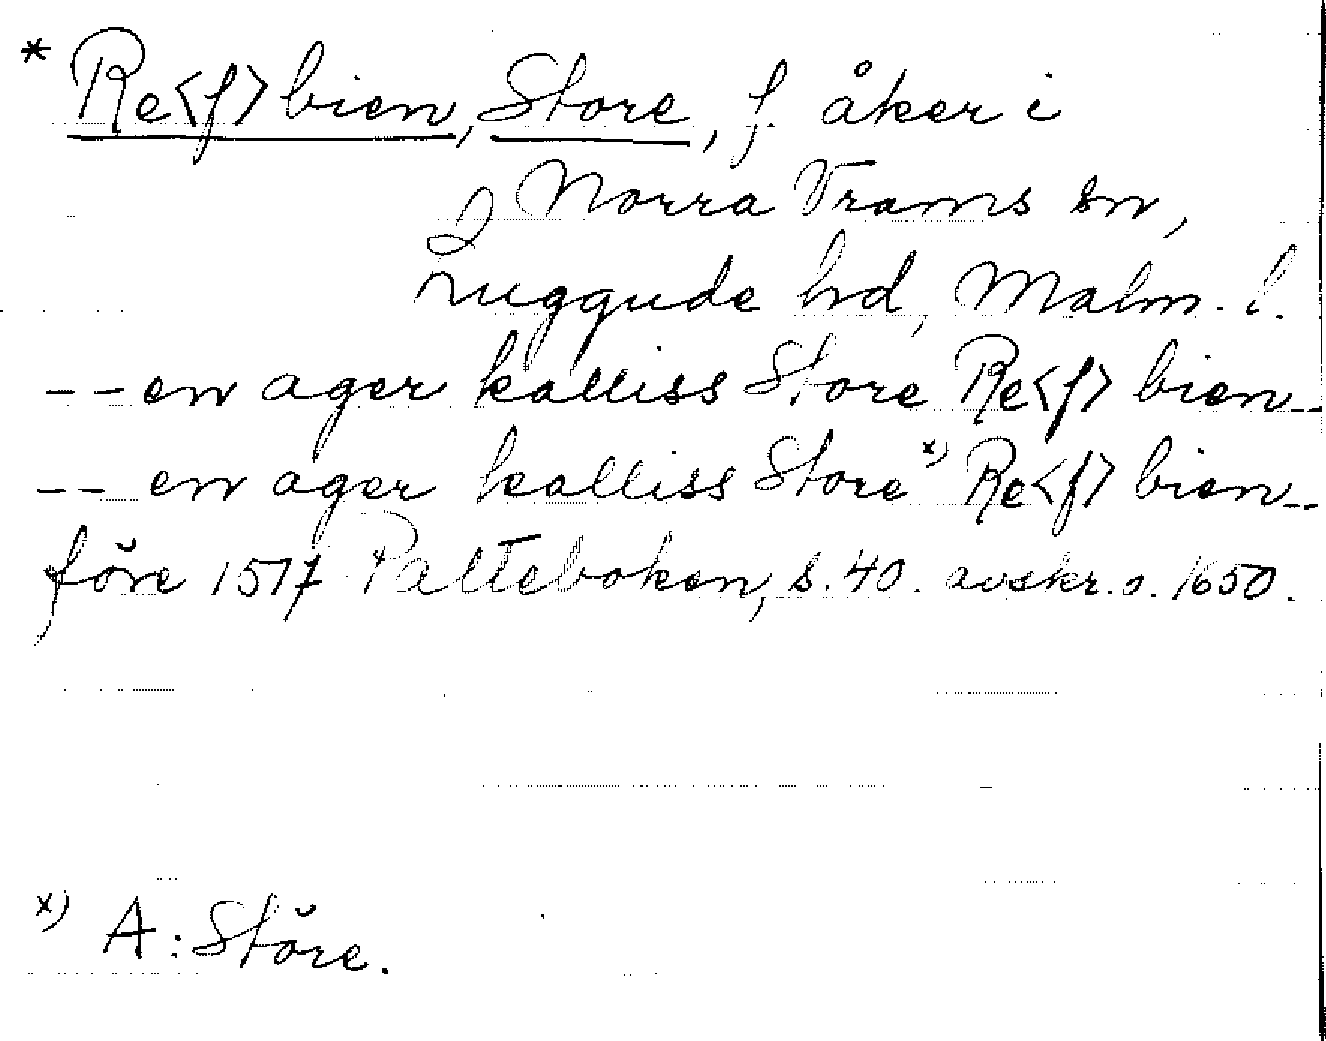 * Re<f>bien, Store, f. åker i
Norra Vrams sn,
Luggude hd, Malm. l.
-- en ager kalliss Store Re<f>bien --
-- en ager kalliss Store x) Re<f>bien --
före 1517 Palteboken, s. 40. avskr. o. 1650.
x) A: Störe.